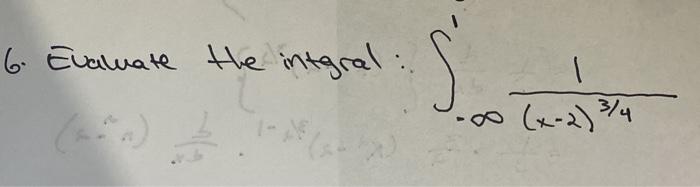 6. Evaluate the integral: ∫_{-∞}^{1} 1/(x-2)^{3/4}